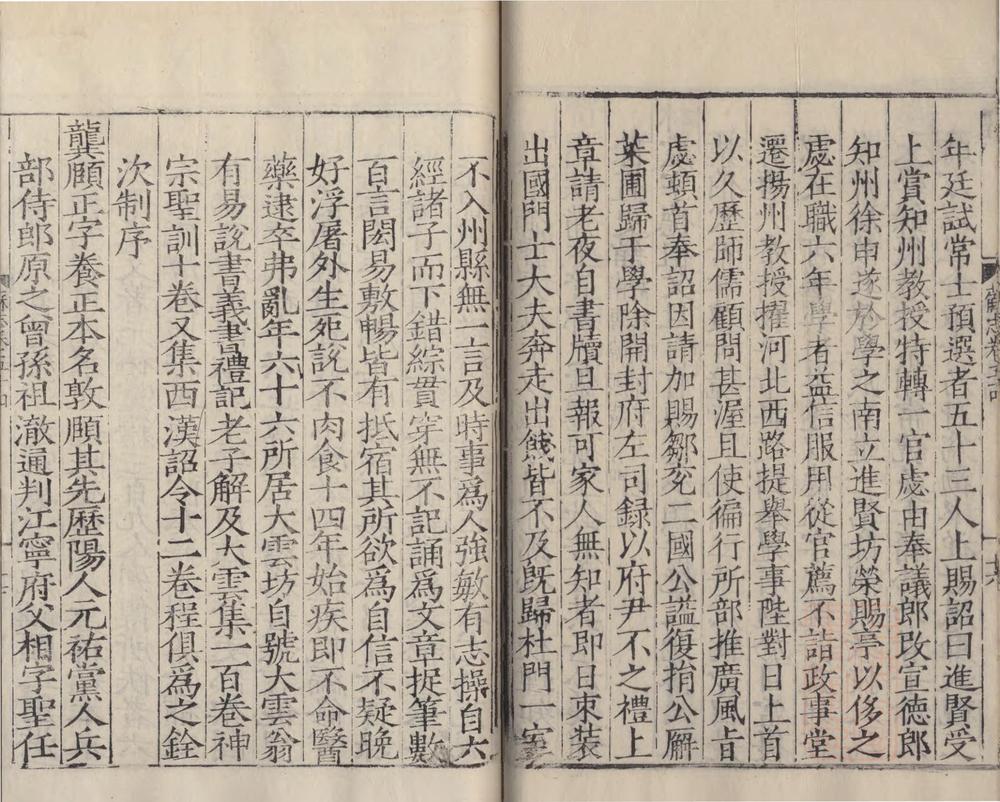 年廷試常士預選者五十三人上賜詔曰進賢受
上賞知州教授特轉一官處由奉議郎改宣德郎
知州徐申遂於學之南立進賢坊榮賜亭以侈之
處在職六年學者益信服用從官薦不詣政事堂
遷揚州教授擢河北西路提舉學事陛對日上首
以久歷師儒顧問甚渥且使徧行所部推廣風旨
處頓首奉詔因請加賜鄒兖二國公謚復捐公廨
菜圃歸于學除開封府左司録以府尹不之禮上
章請老夜自書牘日報可家人無知者即日束装
出國門士大夫奔走出餞皆不及既歸杜門一室
不入州縣無一言及時事爲人強敏有志操自六
經諸子而下錯綜貫穿無不記誦爲文章捉筆數
百言閎易敷暢皆有抵宿其所欲爲自信不疑晚
好浮屠外生死說不肉食十四年始疾即不命醫
藥逮卒弗亂年六十六所居大雲坊自號大雲翁
有易說書義書禮記老子解及大雲集一百卷神
宗聖訓十卷又集西漢詔令十二卷程俱爲之銓
次制序
龔頤正字養正本名敦頤其先歷陽人元祐黨人兵
部侍郎原之曾孫祖澈通判江寧府父相字聖任